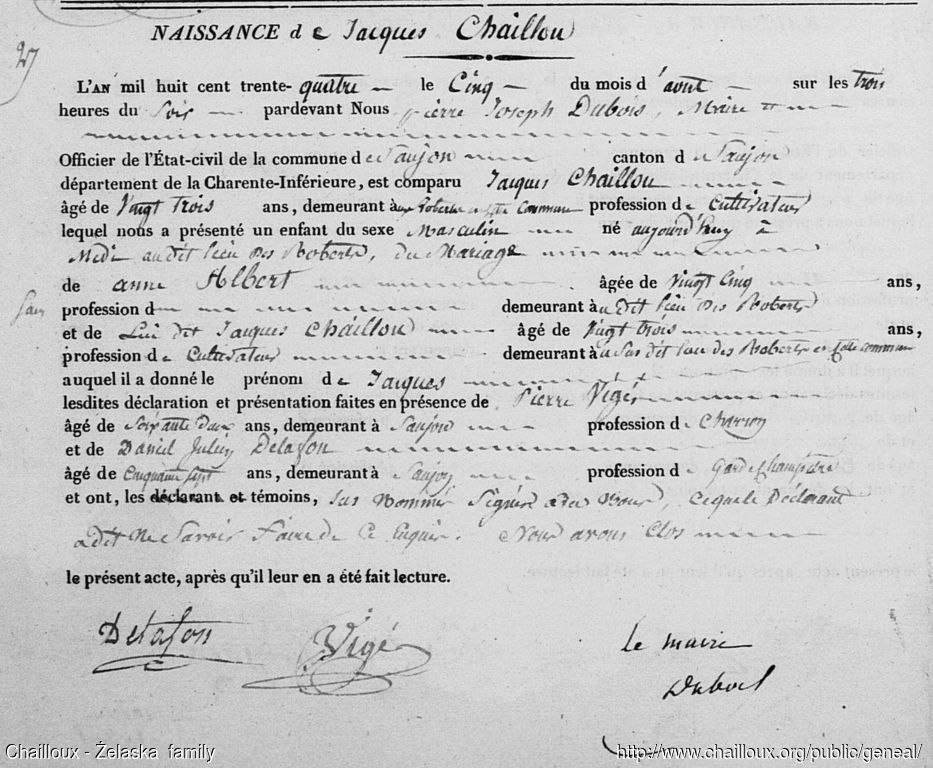 NAISSANCE de Jacques Chaillou
27
L'AN mil huit cent trente-quatre le Cinq du mois d'aout sur les trois
heures du Soir pardevant Nous Pierre Joseph Dubois, Maire
Officier de l'État-civil de la commune de Saujon canton de Saujon
département de la Charente-Inférieure, est comparu Jacques Chaillou
âgé de Vingt trois ans, demeurant aux Roberts en cette Commune profession de Cultivateur
lequel nous a présenté un enfant du sexe Masculin né aujourd'huy à
Midi au dit lieu des Roberts, du Mariage
de anne Albert âgée de Vingt Cinq ans,
profession d demeurant au dit lieu des Roberts
et de Lui dit Jacques Chaillou âgé de Vingt trois ans,
profession de Cultivateur demeurant au Sus dit lieu des Roberts en cette commune
auquel il a donné le prénom de Jacques
lesdites déclaration et présentation faites en présence de Pierre Vigé
âgé de Soixante deux ans, demeurant à Saujon profession de Charron
et de Daniel Julien Delafon
âgé de Cinquante Sept ans, demeurant à Saujon profession de Garde Champêtre
et ont, les déclarant et témoins, sus Nommés Signés avec Nous, Déclarant
a dit Ne Savoir Faire de Ce Enquis. Nous avons Clos
le présent acte, après qu'il leur en a été fait lecture.
Delafon Vigé Le maire
Dubois
Chailloux - Želaska family http://www.chailloux.org/public/geneal/